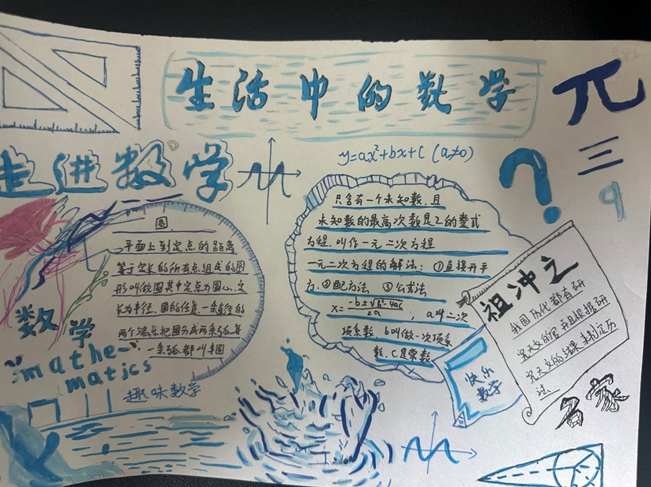 生活中的数学
π
三
9
走进数学
y=ax²+bx+c (a≠0)
?
圆
平面上到定点的距离
等于定长的所有点组成的图
形叫做圆其中定点为圆心,定
长为半径,圆的任意一条直径的
两个端点把圆分成两条弧,每
一条弧都叫半圆
只含有一个未知数,且
未知数的最高次数是2的整式
方程,叫作一元二次方程
一元二次方程的解法:①直接开平
方,②配方法,③公式法
x=-b±√b²-4ac/2a, a叫二次
项系数,b叫做一次项系
数,c是常数
祖冲之
我国历代都有研
究天文的官,并且根据研
究天文的结果来制定历
法
名家
快乐
数学
数学
mathe-
matics
趣味数学